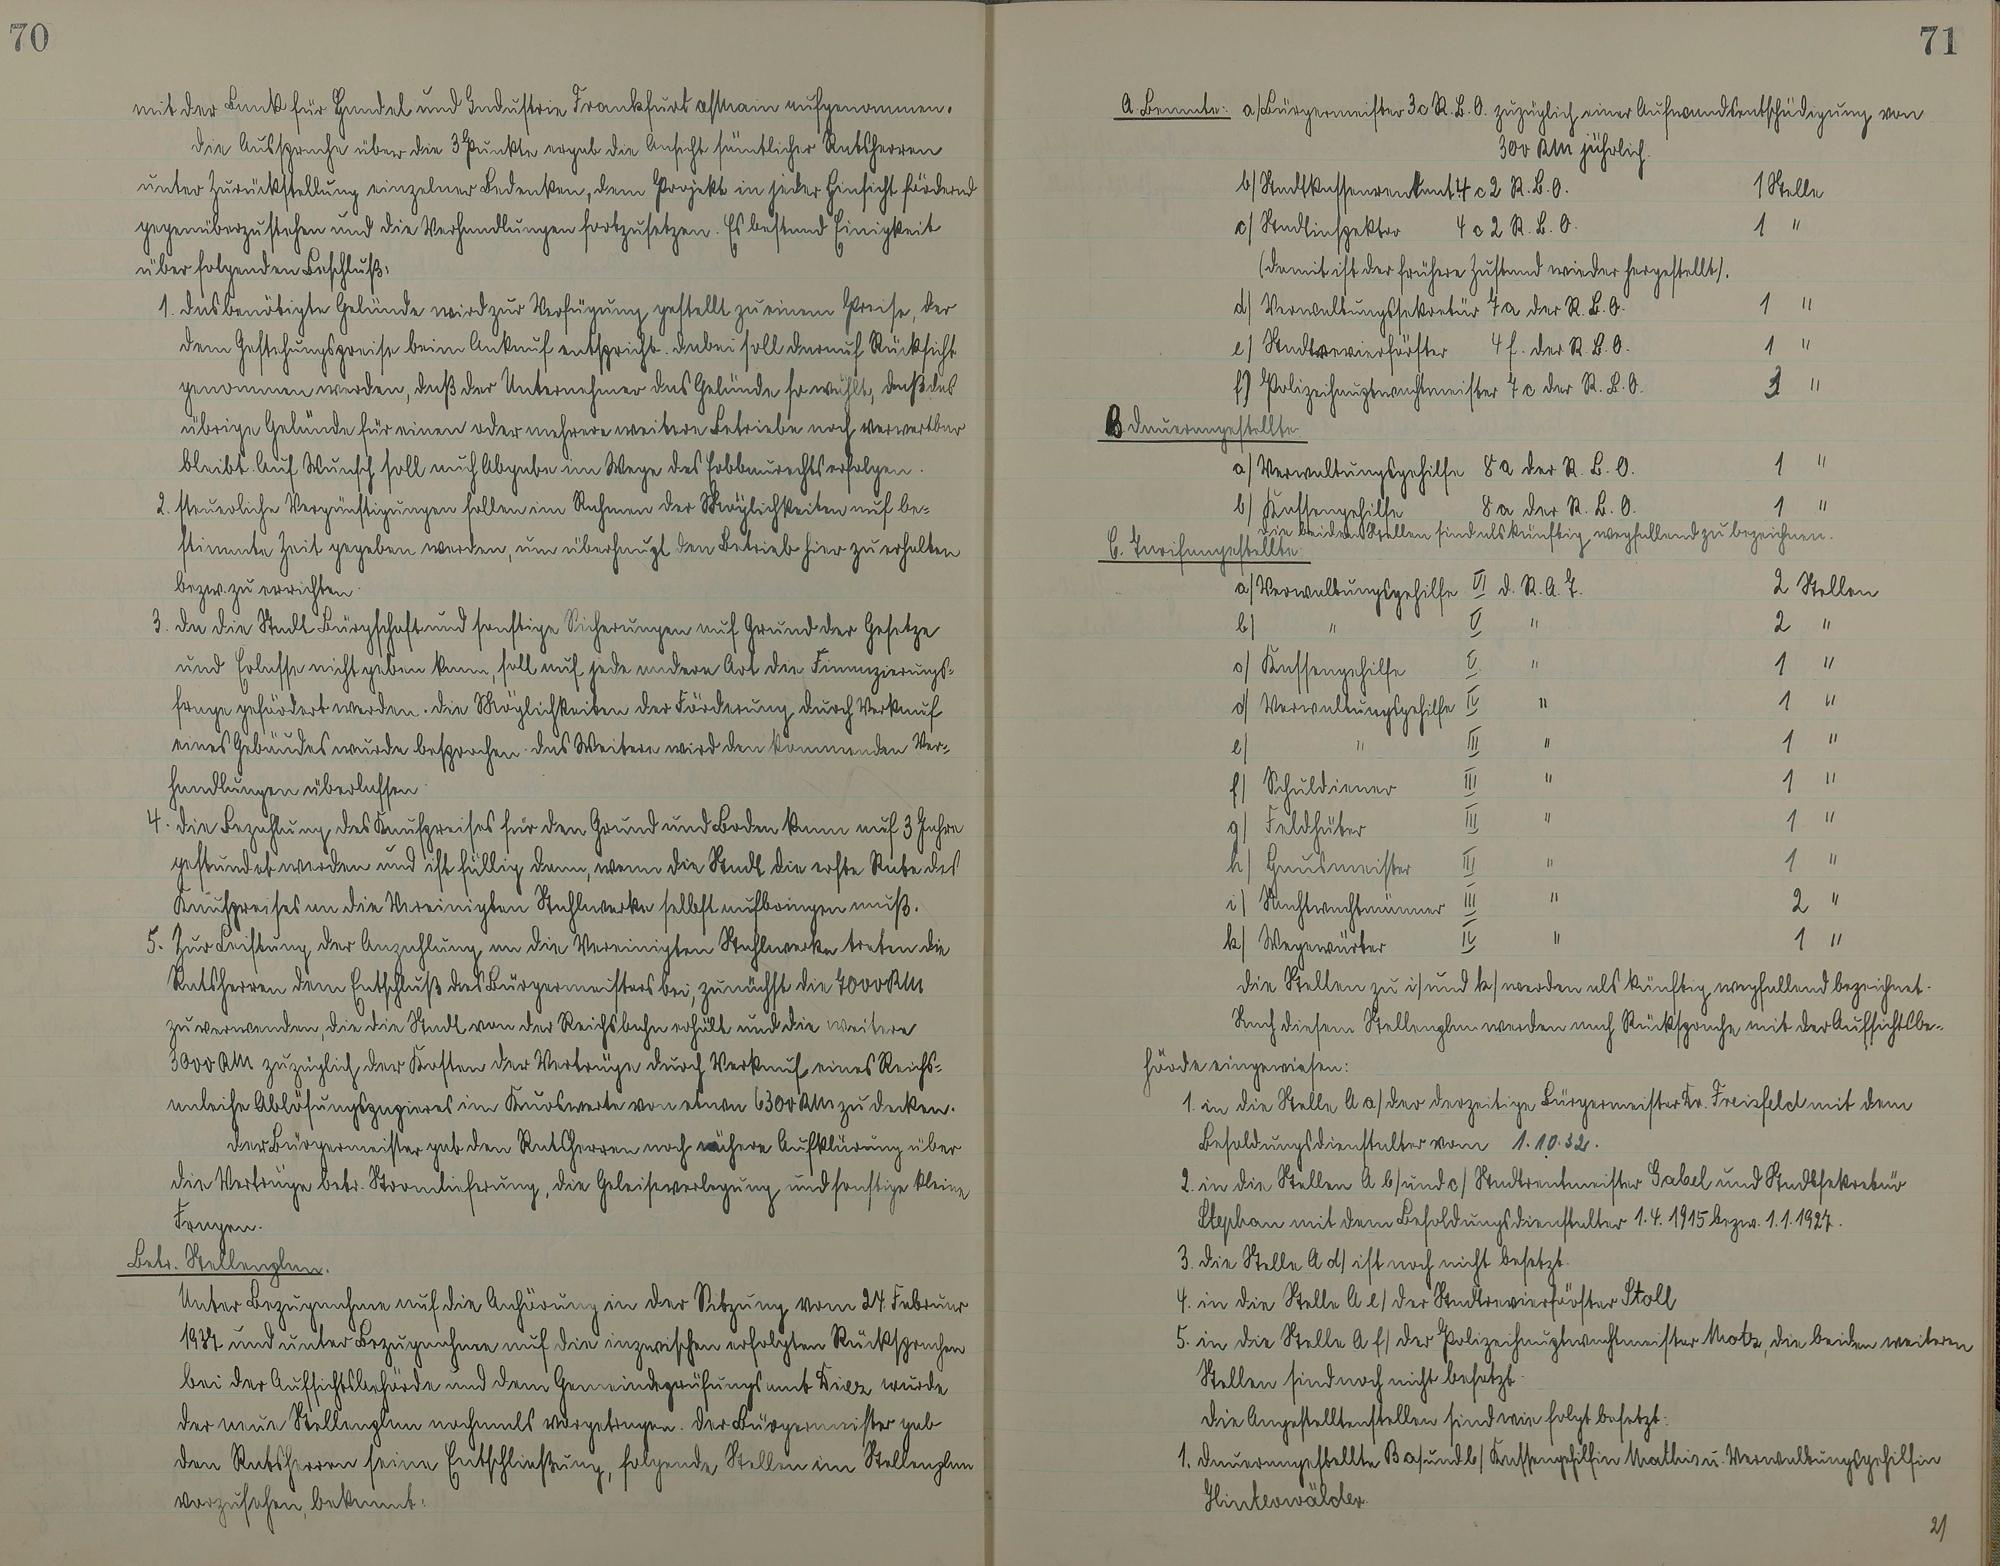 70
mit der Bank für Handel und Industrie Frankfurt a/Main aufgenommen.
Die Aussprache über die 3 Punkte ergab die Ansicht sämtlicher Ratsherren
unter Zurückstellung einzelner Bedenken, dem Projekt in jeder Hinsicht fördernd
gegenüberzustehen und die Verhandlungen fortzusetzen. Es bestand Einigkeit
über folgenden Beschluß:
1. das benötigte Gelände wird zur Verfügung gestellt zu einem Preise, der
dem Gestehungspreise beim Ankauf entspricht. Dabei soll darauf Rücksicht
genommen werden, daß der Unternehmer das Gelände so wählt, daß das
übrige Gelände für einen oder mehrere weitere Betriebe noch verwertbar
bleibt. Auf Wunsch soll auch Abgabe im Wege des Erbbaurechts erfolgen.
2. steuerliche Vergünstigungen sollen im Rahmen der Möglichkeiten auf be-
stimmte Zeit gegeben werden, um überhaupt den Betrieb hier zu erhalten
bezw. zu errichten.
3. Da die Stadt Bürgschaft und sonstige Sicherungen auf Grund der Gesetze
und Erlasse nicht geben kann, soll auf jede andere Art die Finanzierungs-
frage gefördert werden. Die Möglichkeiten der Förderung durch Verkauf
eines Gebäudes wurde besprochen. Das Weitere wird den kommenden Ver-
handlungen überlassen.
4. Die Bezahlung des Kaufpreises für den Grund und Boden kann auf 3 Jahre
gestundet werden und ist fällig dann, wenn die Stadt die erste Rate des
Kaufpreises an die Vereinigten Stahlwerke selbst aufbringen muß.
5. Zur Leistung der Anzahlung an die Vereinigten Stahlwerke treten die
Ratsherren dem Entschluß des Bürgermeisters bei, zunächst die 7000 RM
zu verwenden, die die Stadt von der Reichsbahn erhält und die weitere
3000 RM zuzüglich der Kosten der Verträge durch Verkauf eines Reichs-
anleihe Ablösungspapieres im Kurswerte von etwa 6300 RM zu decken.
Der Bürgermeister gab den Ratsherren noch nähere Aufklärung über
die Verträge betr. Stromlieferung, die Geleiseverlegung und sonstige kleine
Fragen.
Betr. Stellenplan.
Unter Bezugnahme auf die Anhörung in der Sitzung vom 24. Februar
1937 und unter Bezugnahme auf die inzwischen erfolgten Rücksprachen
bei der Aufsichtsbehörde und dem Gemeindeprüfungsamt Diez wurde
der neue Stellenplan nochmals vorgetragen. Der Bürgermeister gab
den Ratsherren seine Entschließung, folgende Stellen im Stellenplan
vorzusehen, bekannt:
71
A. Beamte: a/ Bürgermeister 3c R.B.O. zuzüglich einer Aufwandsentschädigung von
300 RM jährlich.
b/ Stadtkassenrentamt 4 c 2 R.B.O. 1 Stelle
c/ Stadtinspektor 4 c 2 R.B.O. 1 "
(damit ist der frühere Zustand wieder hergestellt).
d/ Verwaltungssekretär 7a der R.B.O. 1 "
e/ Stadtrevierförster 4 f. der R.B.O. 1 "
f) Polizeihauptwachtmeister 7 c der R.B.O. 3 "
B Dauerangestellte
a/ Verwaltungsgehilfe 8 a der R.B.O. 1 "
b/ Kassengehilfe 8 a der R.B.O. 1 "
Die beiden Stellen sind als künftig wegfallend zu bezeichnen.
C. Tarifangestellte
a/ Verwaltungsgehilfe VI d. R.A.T. 2 Stellen
b/ " V " 2 "
c/ Kassengehilfe V " 1 "
d/ Verwaltungsgehilfe IV " 1 "
e/ " III " 1 "
f/ Schuldiener III " 1 "
g/ Feldhüter III " 1 "
h/ Hausmeister III " 1 "
i/ Nachtwachtmänner III " 2 "
k/ Wegewärter IV " 1 "
Die Stellen zu i/ und k/ werden als künftig wegfallend bezeichnet.
Nach diesem Stellenplan werden nach Rücksprache mit der Aufsichtsbe-
hörde eingewiesen:
1. in die Stelle A a/ der derzeitige Bürgermeister Dr. Freisfeld mit dem
Besoldungsdienstalter vom 1.10.32.
2. in die Stellen A b/ und c/ Stadtrentmeister Gabel und Stadtsekretär
Stephan mit dem Besoldungsdienstalter 1.4.1915 bezw. 1.1.1927.
3. die Stelle A d/ ist noch nicht besetzt.
4. in die Stelle A e/ der Stadtrevierförster Stoll
5. in die Stelle A f/ der Polizeihauptwachtmeister Motz, die beiden weiteren
Stellen sind noch nicht besetzt.
Die Angestelltenstellen sind wie folgt besetzt:
1. Dauerangestellte B a/ und b/ Kassengehilfin Mathis u. Verwaltungsgehilfin
Hinterwälder.
2/